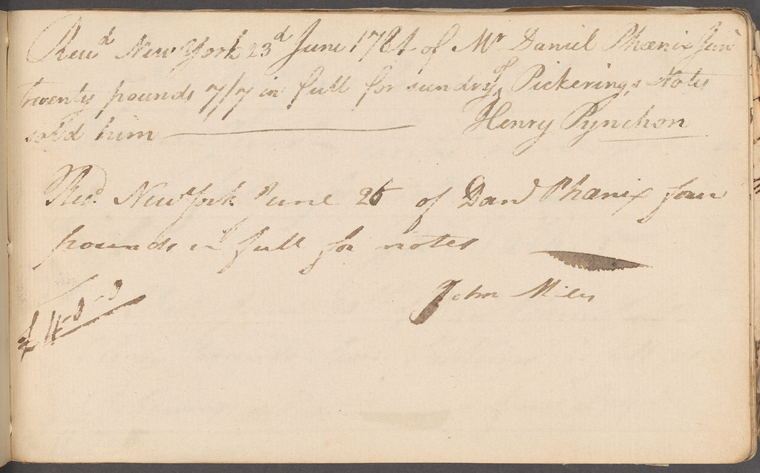 Recd New York 23d June 1784 of Mr Daniel Phœnix Junr
twenty pounds 7/7 in full for sundry of Pickerings Notes
sold him
Henry Pynchon
Recd New York June 26 of Danl Phœnix four
pounds in full for notes
John Miles
£4-0-0